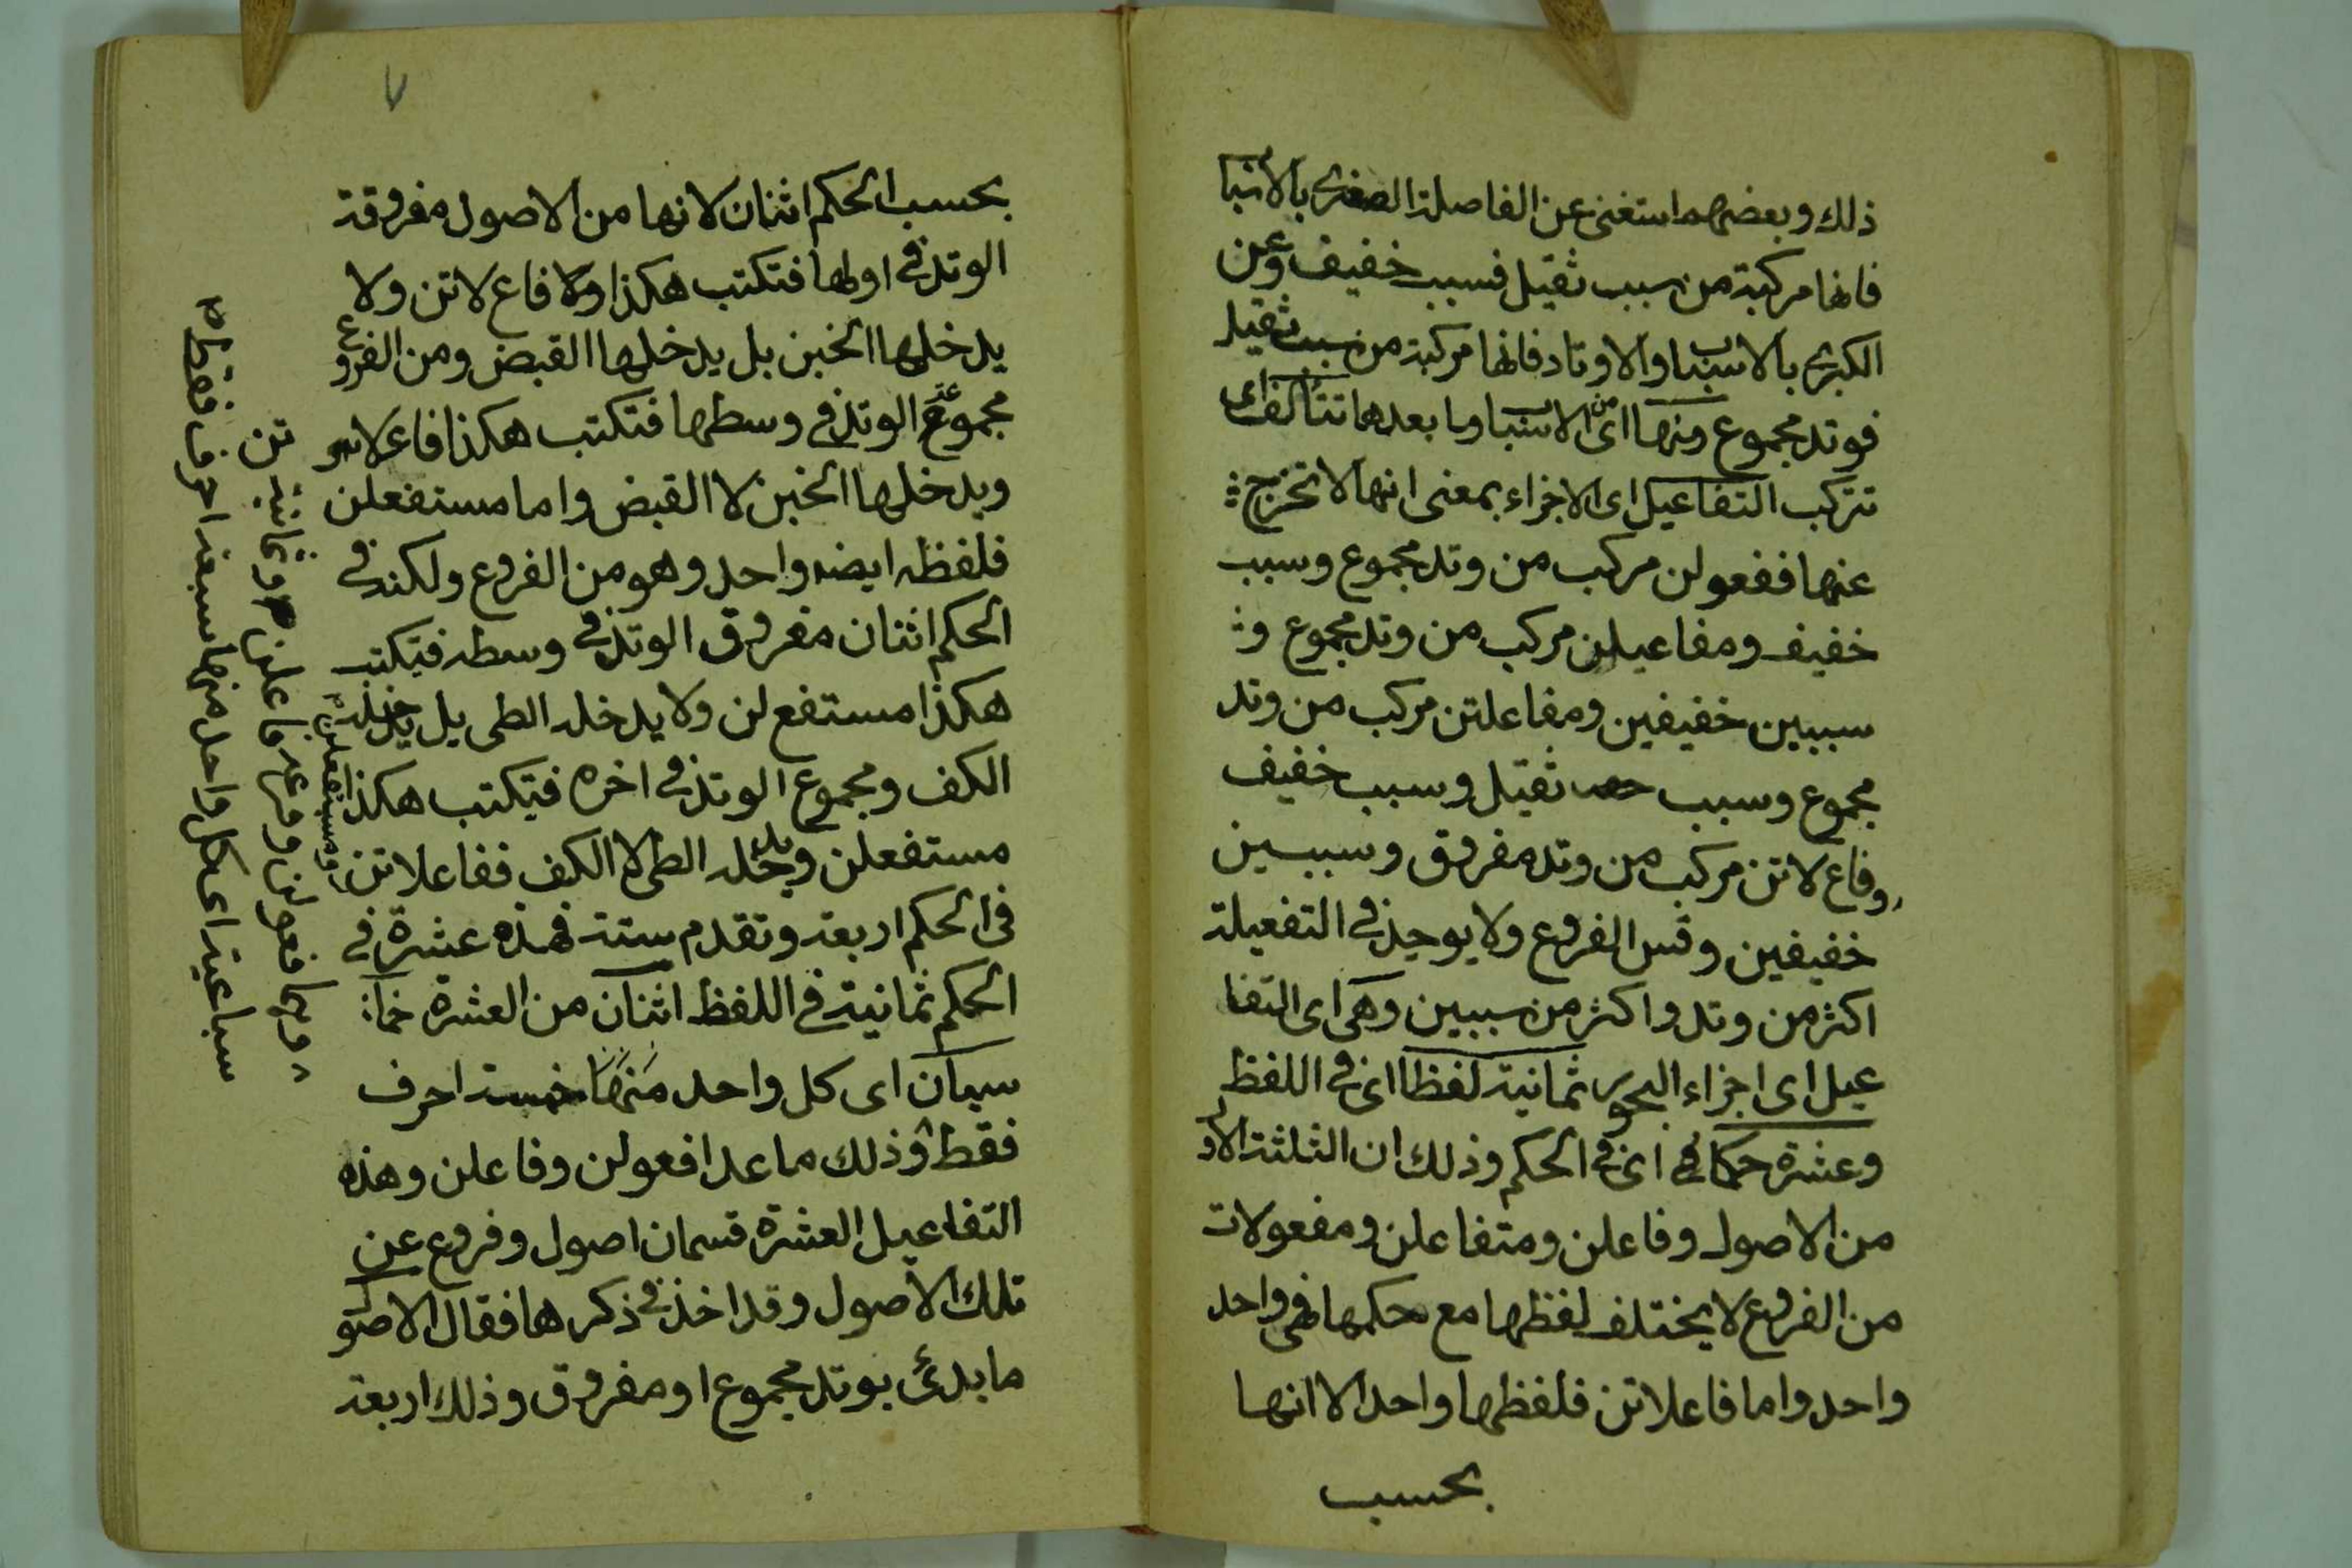 ذلك وبعضهم استغنى عن الفاصلة الصغرى بالاسبا
فانها مركبة من سبب ثقيل فسبب خفيف وعن
الكبرى بالاسباب والاوتاد فانها مركبة من سبب ثقيل
فوتد مجموع ومنها اى من الاسباب وما بعدها تتألف اى
تتركب التفاعيل اى الاجزاء بمعنى انها لا تخرج
عنها ففعولن مركب من وتد مجموع وسبب
خفيف ومفاعيلن مركب من وتد مجموع و
سببين خفيفين ومفاعلتن مركب من وتد
مجموع وسبب ثقيل وسبب خفيف
وفاع لاتن مركب من وتد مفروق وسببين
خفيفين وقس الفروع ولا يوجد فى التفعيلة
اكثر من وتد واكثر من سببين وهى اى التفا
عيل اى اجزاء البحور ثمانية لفظا اى فى اللفظ
وعشرة حكما اى فى الحكم وذلك ان الثلثة الاول
من الاصول وفاعلن ومتفاعلن ومفعولات
من الفروع لا يختلف لفظها مع حكمها فهى واحد
واحد واما فاعلاتن فلفظها واحد الا انها
بحسب
٧
بحسب الحكم اثنان لانها من الاصول مفروقة
الوتد فى اولها فتكتب هكذا فاع لاتن ولا
يدخلها الخبن بل يدخلها القبض ومن الفروع
مجموعة الوتد فى وسطها فتكتب هكذا فاعلاتن
ويدخلها الخبن لا القبض واما مستفعلن
فلفظه ايضه واحد وهو من الفروع ولكنه فى
الحكم اثنان مفروق الوتد فى وسطه فيكتب
هكذا مستفع لن ولا يدخله الطى بل يدخله
الكف ومجموع الوتد فى اخره فيكتب هكذا
مستفعلن ويدخله الطى لا الكف ففاعلاتن
ومستفعلن
فى الحكم اربعة وتقدم ستة فهذه عشرة فى
الحكم ثمانية فى اللفظ اثنان من العشرة خما
سيان اى كل واحد منها خمسة احرف
فقط وذلك ما عدا فعولن وفاعلن وهذه
التفاعيل العشرة قسمان اصول وفروع عن
تلك الاصول وقد اخذ فى ذكرها فقال الاصول
ما بدئ بوتد مجموع او مفروق وذلك اربعة
تن
وهما فعولن وفاعلن وثمانية
سباعية اى كل واحد منها سبعة احرف فقط